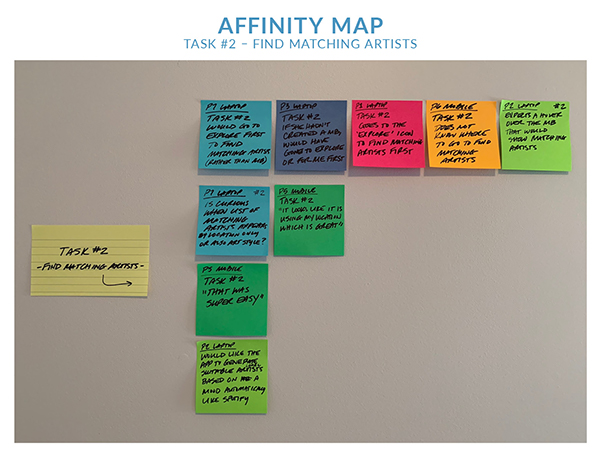 AFFINITY MAP
TASK #2 – FIND MATCHING ARTISTS
P7 LAPTOP
TASK #2
WOULD GO TO
EXPLORE FIRST
TO FIND
MATCHING ARTISTS
(RATHER THAN MB)
P3 LAPTOP
TASK #2
IF SHE HADN'T
CREATED A MB,
WOULD HAVE
GONE TO EXPLORE
OR FOR ME FIRST
LAPTOP
TASK #2
GOES TO THE
'EXPLORE' ICON
TO FIND MATCHING
ARTISTS FIRST
P6 MOBILE
TASK #2
DOES NOT
KNOW WHERE
TO GO TO FIND
MATCHING
ARTISTS
P2 LAPTOP #2
EXPECTS A HOVER
OVER THE MB
THAT WOULD
SHOW MATCHING
ARTISTS
P7 LAPTOP #2
IS CURIOUS
WHEN LIST OF
MATCHING
ARTISTS APPEARS
BY LOCATION ONLY
OR ALSO ART STYLE?
P5 MOBILE
TASK #2
"IT LOOKS LIKE IT IS
USING MY LOCATION
WHICH IS GREAT"
TASK #2
-FIND MATCHING ARTISTS-
P5 MOBILE
TASK #2
"THAT WAS
SUPER EASY"
P2 LAPTOP
WOULD LIKE THE
APP TO GENERATE
SUITABLE ARTISTS
BASED ON A
MOOD AUTOMATICALLY
LIKE SPOTIFY